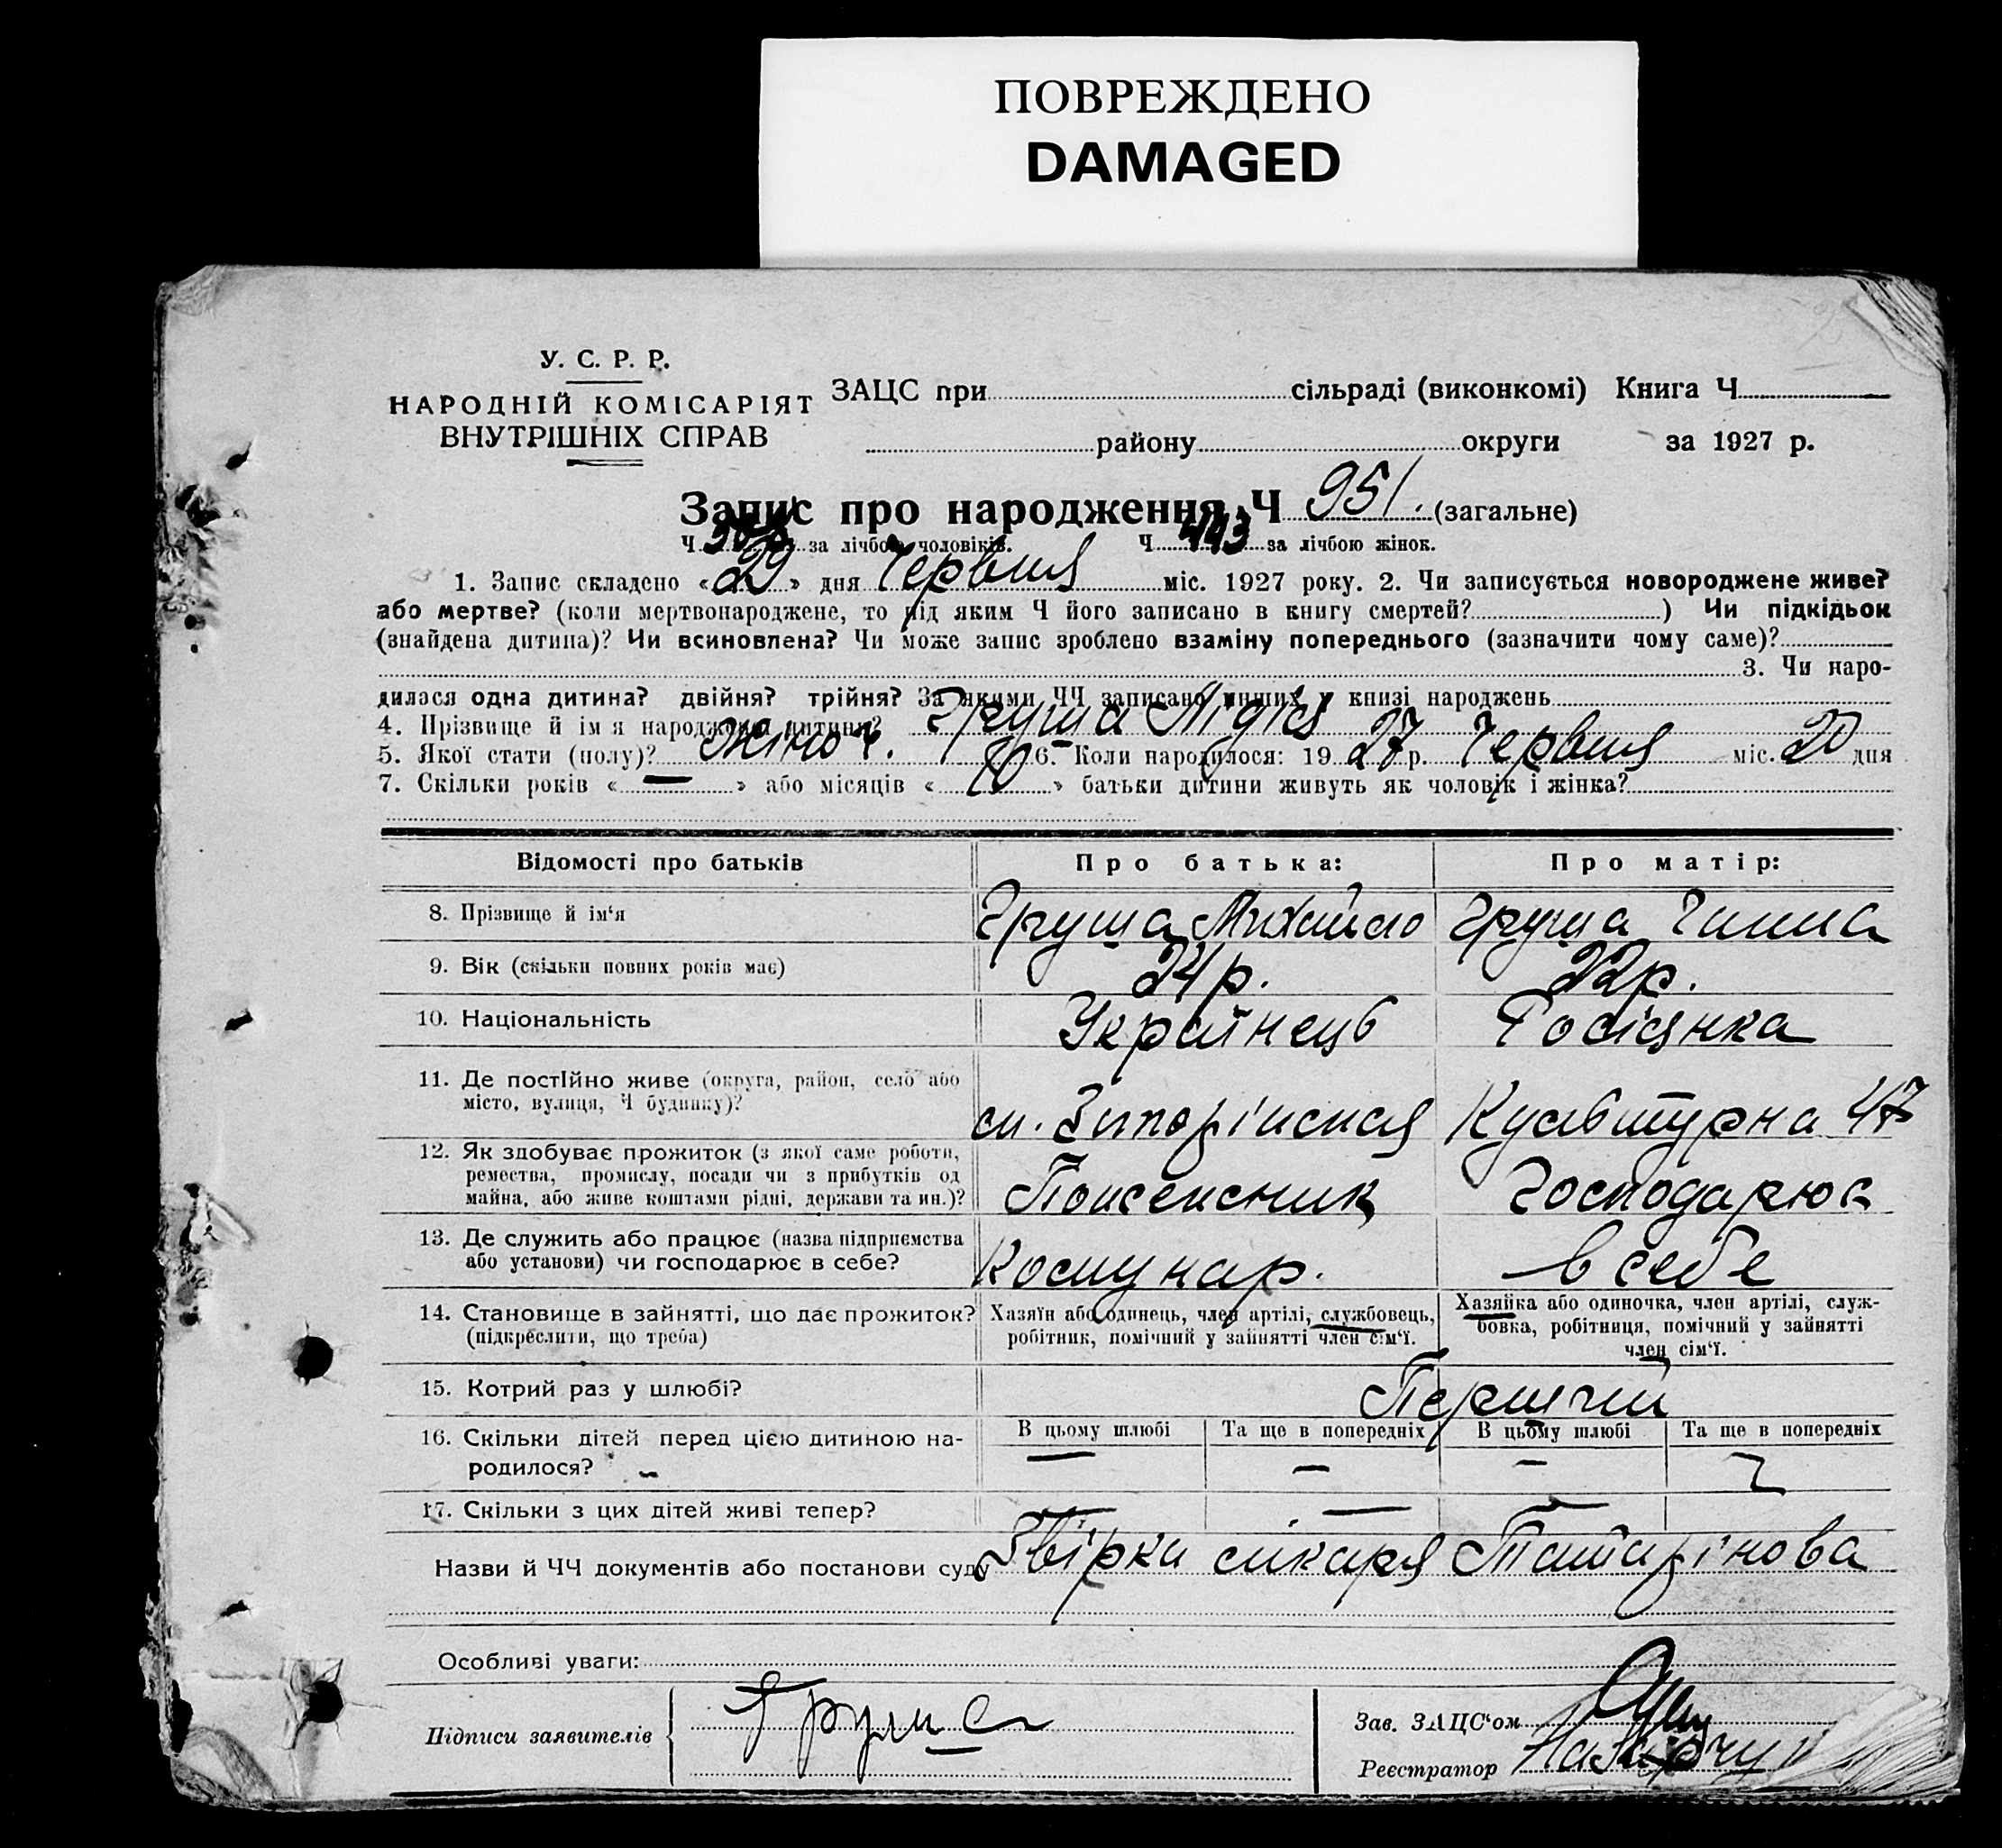 ПОВРЕЖДЕНО
DAMAGED
У. С. Р. Р.
НАРОДНІЙ КОМІСАРІЯТ
ВНУТРІШНІХ СПРАВ
ЗАЦС при сільраді (виконкомі) Книга Ч
району округи за 1927 р.
Запис про народження Ч 951. (загальне)
Ч за лічбою чоловіків. Ч 443 за лічбою жінок.
1. Запис складено «29» дня Червня міс. 1927 року. 2. Чи записується новороджене живе?
або мертве? (коли мертвонароджене, то під яким Ч його записано в книгу смертей? ) Чи підкідьок
(знайдена дитина)? Чи всиновлена? Чи може запис зроблено взаміну попереднього (зазначити чому саме)?
3. Чи наро-
дилася одна дитина? двійня? трійня? За якими ЧЧ записано инших у книзі народжень
4. Прізвище й ім я народженої дитини? Груша Лідія
5. Якої стати (полу)? жіноч. 6. Коли народилося: 1927 р. Червня міс. 20 дня
7. Скільки років « — » або місяців « 10 » батьки дитини живуть як чоловік і жінка?
Відомості про батьків
Про батька:
Про матір:
8. Прізвище й ім‘я
Груша Михайло
Груша Ганна
9. Вік (скільки повних років має)
24 р.
22 р.
10. Національність
Українець
Росіянка
11. Де постійно живе (округа, район, село або
місто, вулиця, Ч будинку)?
Культурна 47
12. Як здобуває прожиток (з якої саме роботи,
ремества, промислу, посади чи з прибутків од
майна, або живе коштами рідні, держави та ин.)?
Господарює
13. Де служить або працює (назва підприємства
або установи) чи господарює в себе?
Комунар.
в себе
14. Становище в зайнятті, що дає прожиток?
(підкреслити, що треба)
Хазяїн або одинець, член артілі, службовець,
робітник, помічний у зайнятті член сім‘ї.
Хазяйка або одиночка, член артілі, служ-
бовка, робітниця, помічний у зайнятті
член сім‘ї.
15. Котрий раз у шлюбі?
16. Скільки дітей перед цією дитиною на-
родилося?
В цьому шлюбі
Та ще в попередніх
В цьому шлюбі
Та ще в попередніх
17. Скільки з цих дітей живі тепер?
Назви й ЧЧ документів або постанови суду лікаря Татарінова
Особливі уваги:
Підписи заявителів
Груша
Зав. ЗАЦС‘ом
Реєстратор